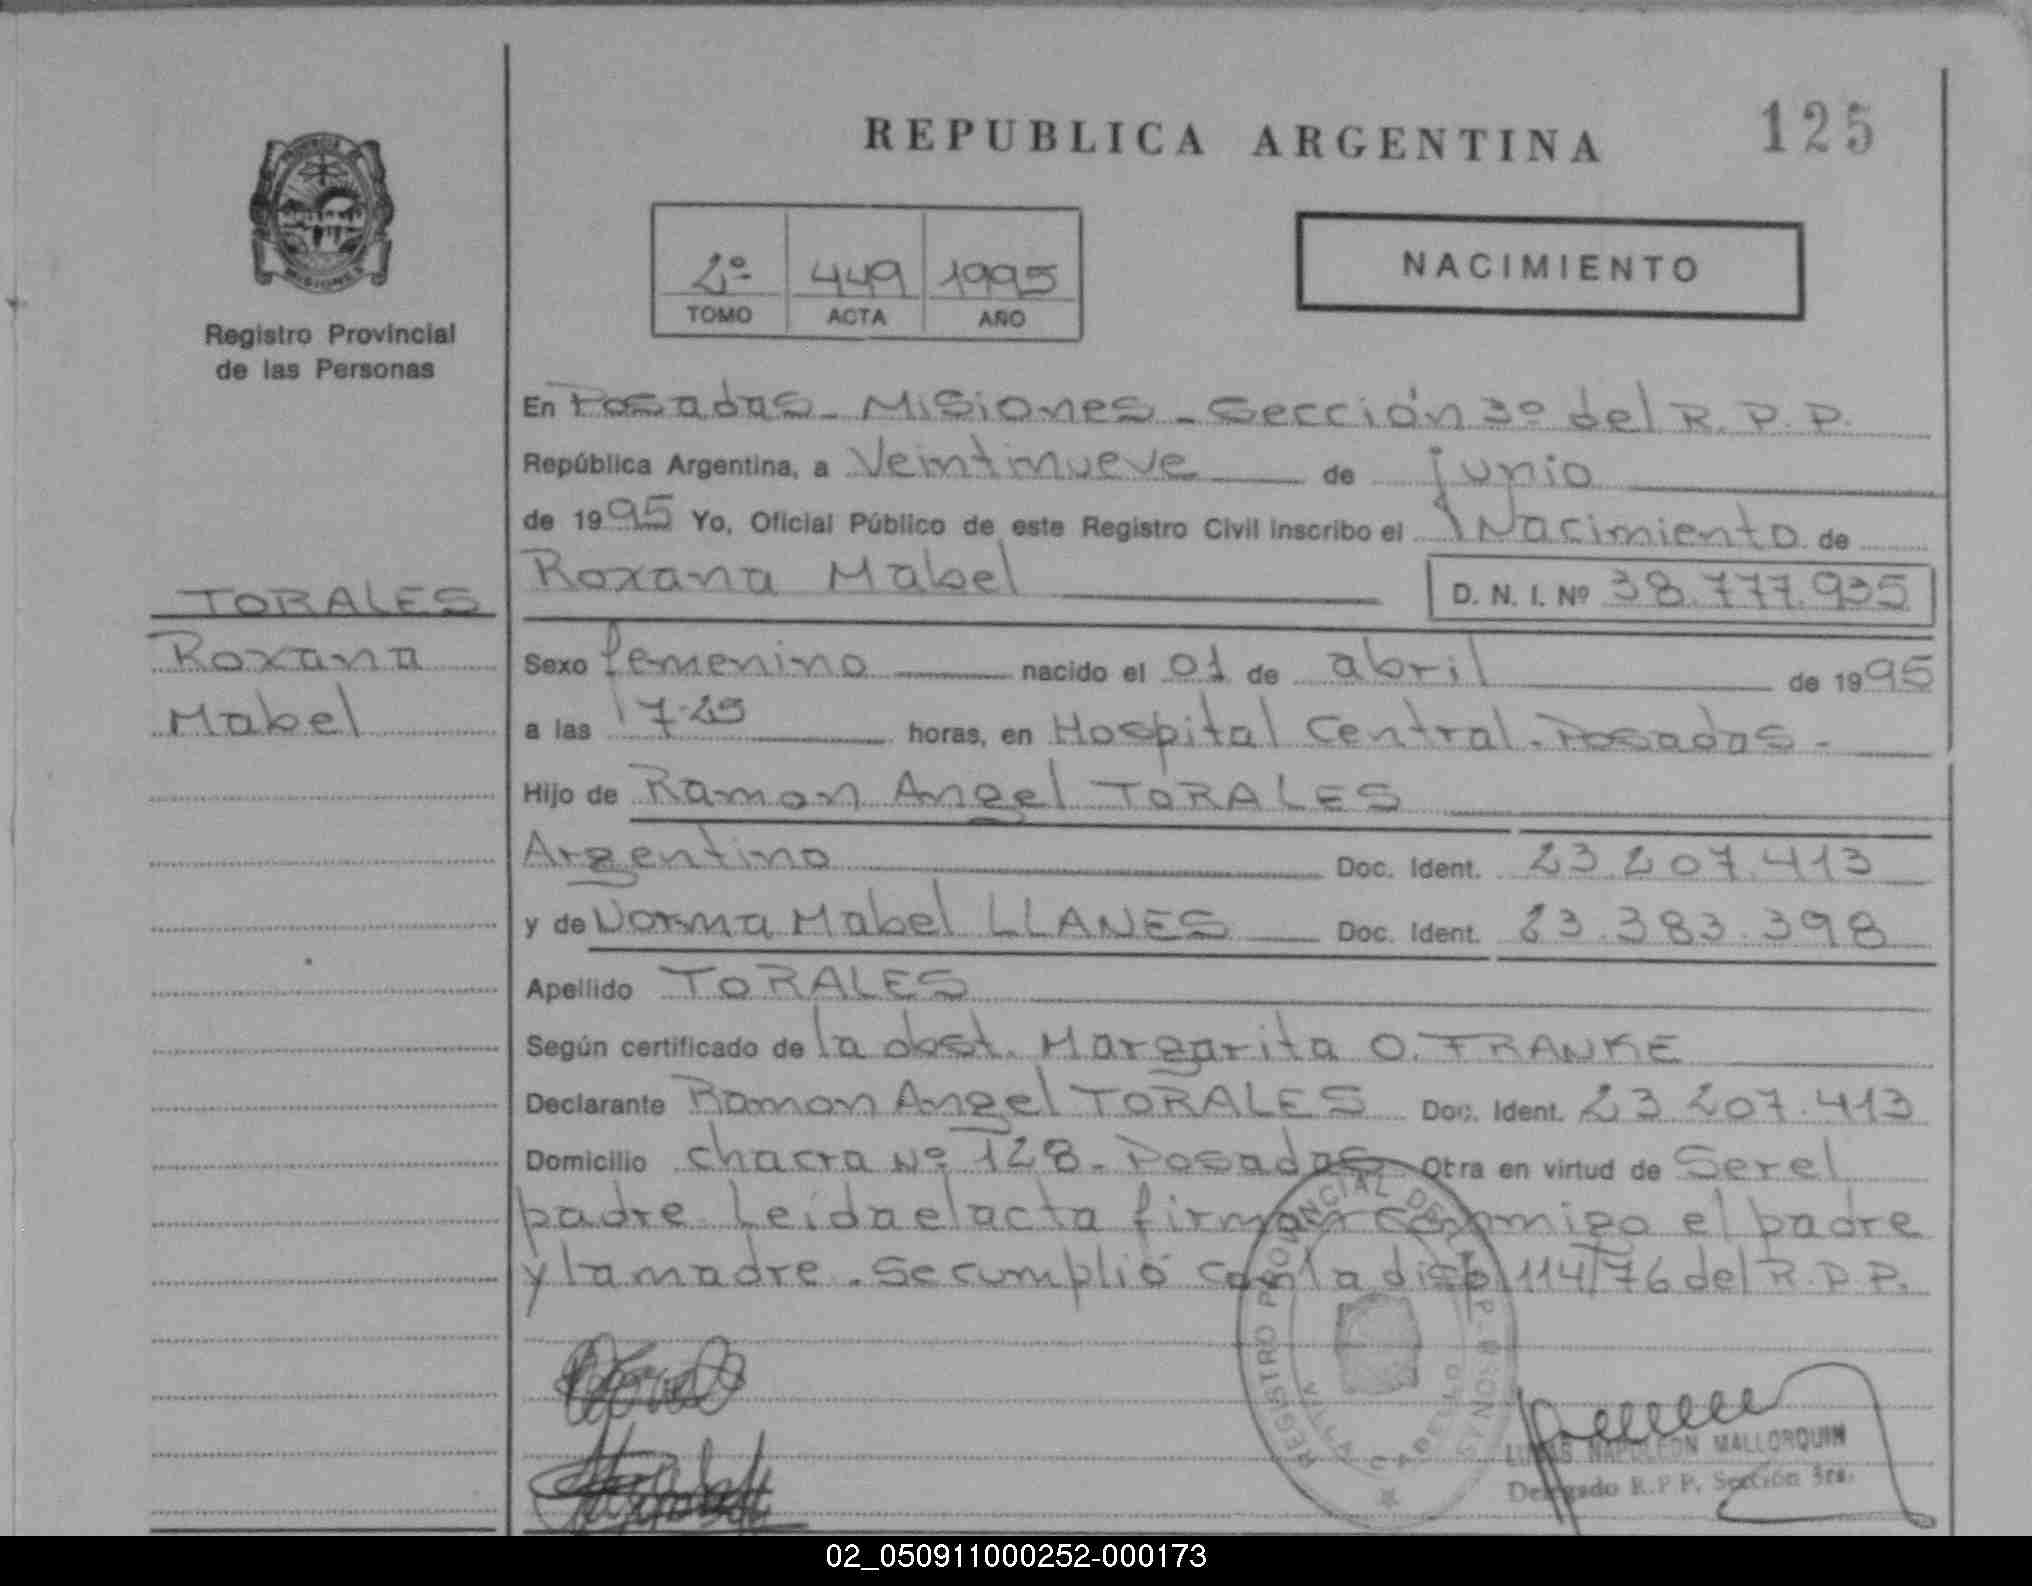 REPUBLICA ARGENTINA
125
PROVINCIA DE
MISIONES
Registro Provincial
de las Personas
2º 449 1995
TOMO ACTA AÑO
NACIMIENTO
En Posadas - Misiones - Sección 3º del R. P. P.
República Argentina, a Veintinueve de junio
de 1995 Yo, Oficial Público de este Registro Civil inscribo el Nacimiento de
Roxana Mabel
D. N. I. Nº 38.777.935
TORALES
Roxana
Mabel
Sexo femenino nacido el 01 de abril de 1995
a las 17.25 horas, en Hospital Central - Posadas -
Hijo de Ramon Angel TORALES
Argentino Doc. Ident. 23.207.413
y de Norma Mabel LLANES Doc. Ident. 23.383.398
Apellido TORALES
Según certificado de la obst. Margarita O. FRANKE
Declarante Ramon Angel TORALES Doc. Ident. 23.207.413
Domicilio chacra Nº 128 - Posadas Obra en virtud de Ser el
padre. Leída el acta firman conmigo el padre
y la madre. Se cumplió con la disp. 114/76 del R.P.P.
REGISTRO PROVINCIAL DE LAS PERSONAS
VILLA CABELLO
LUCAS NAPOLEON MALLORQUIN
Delegado R.P.P. Sección 3ra.
02_050911000252-000173